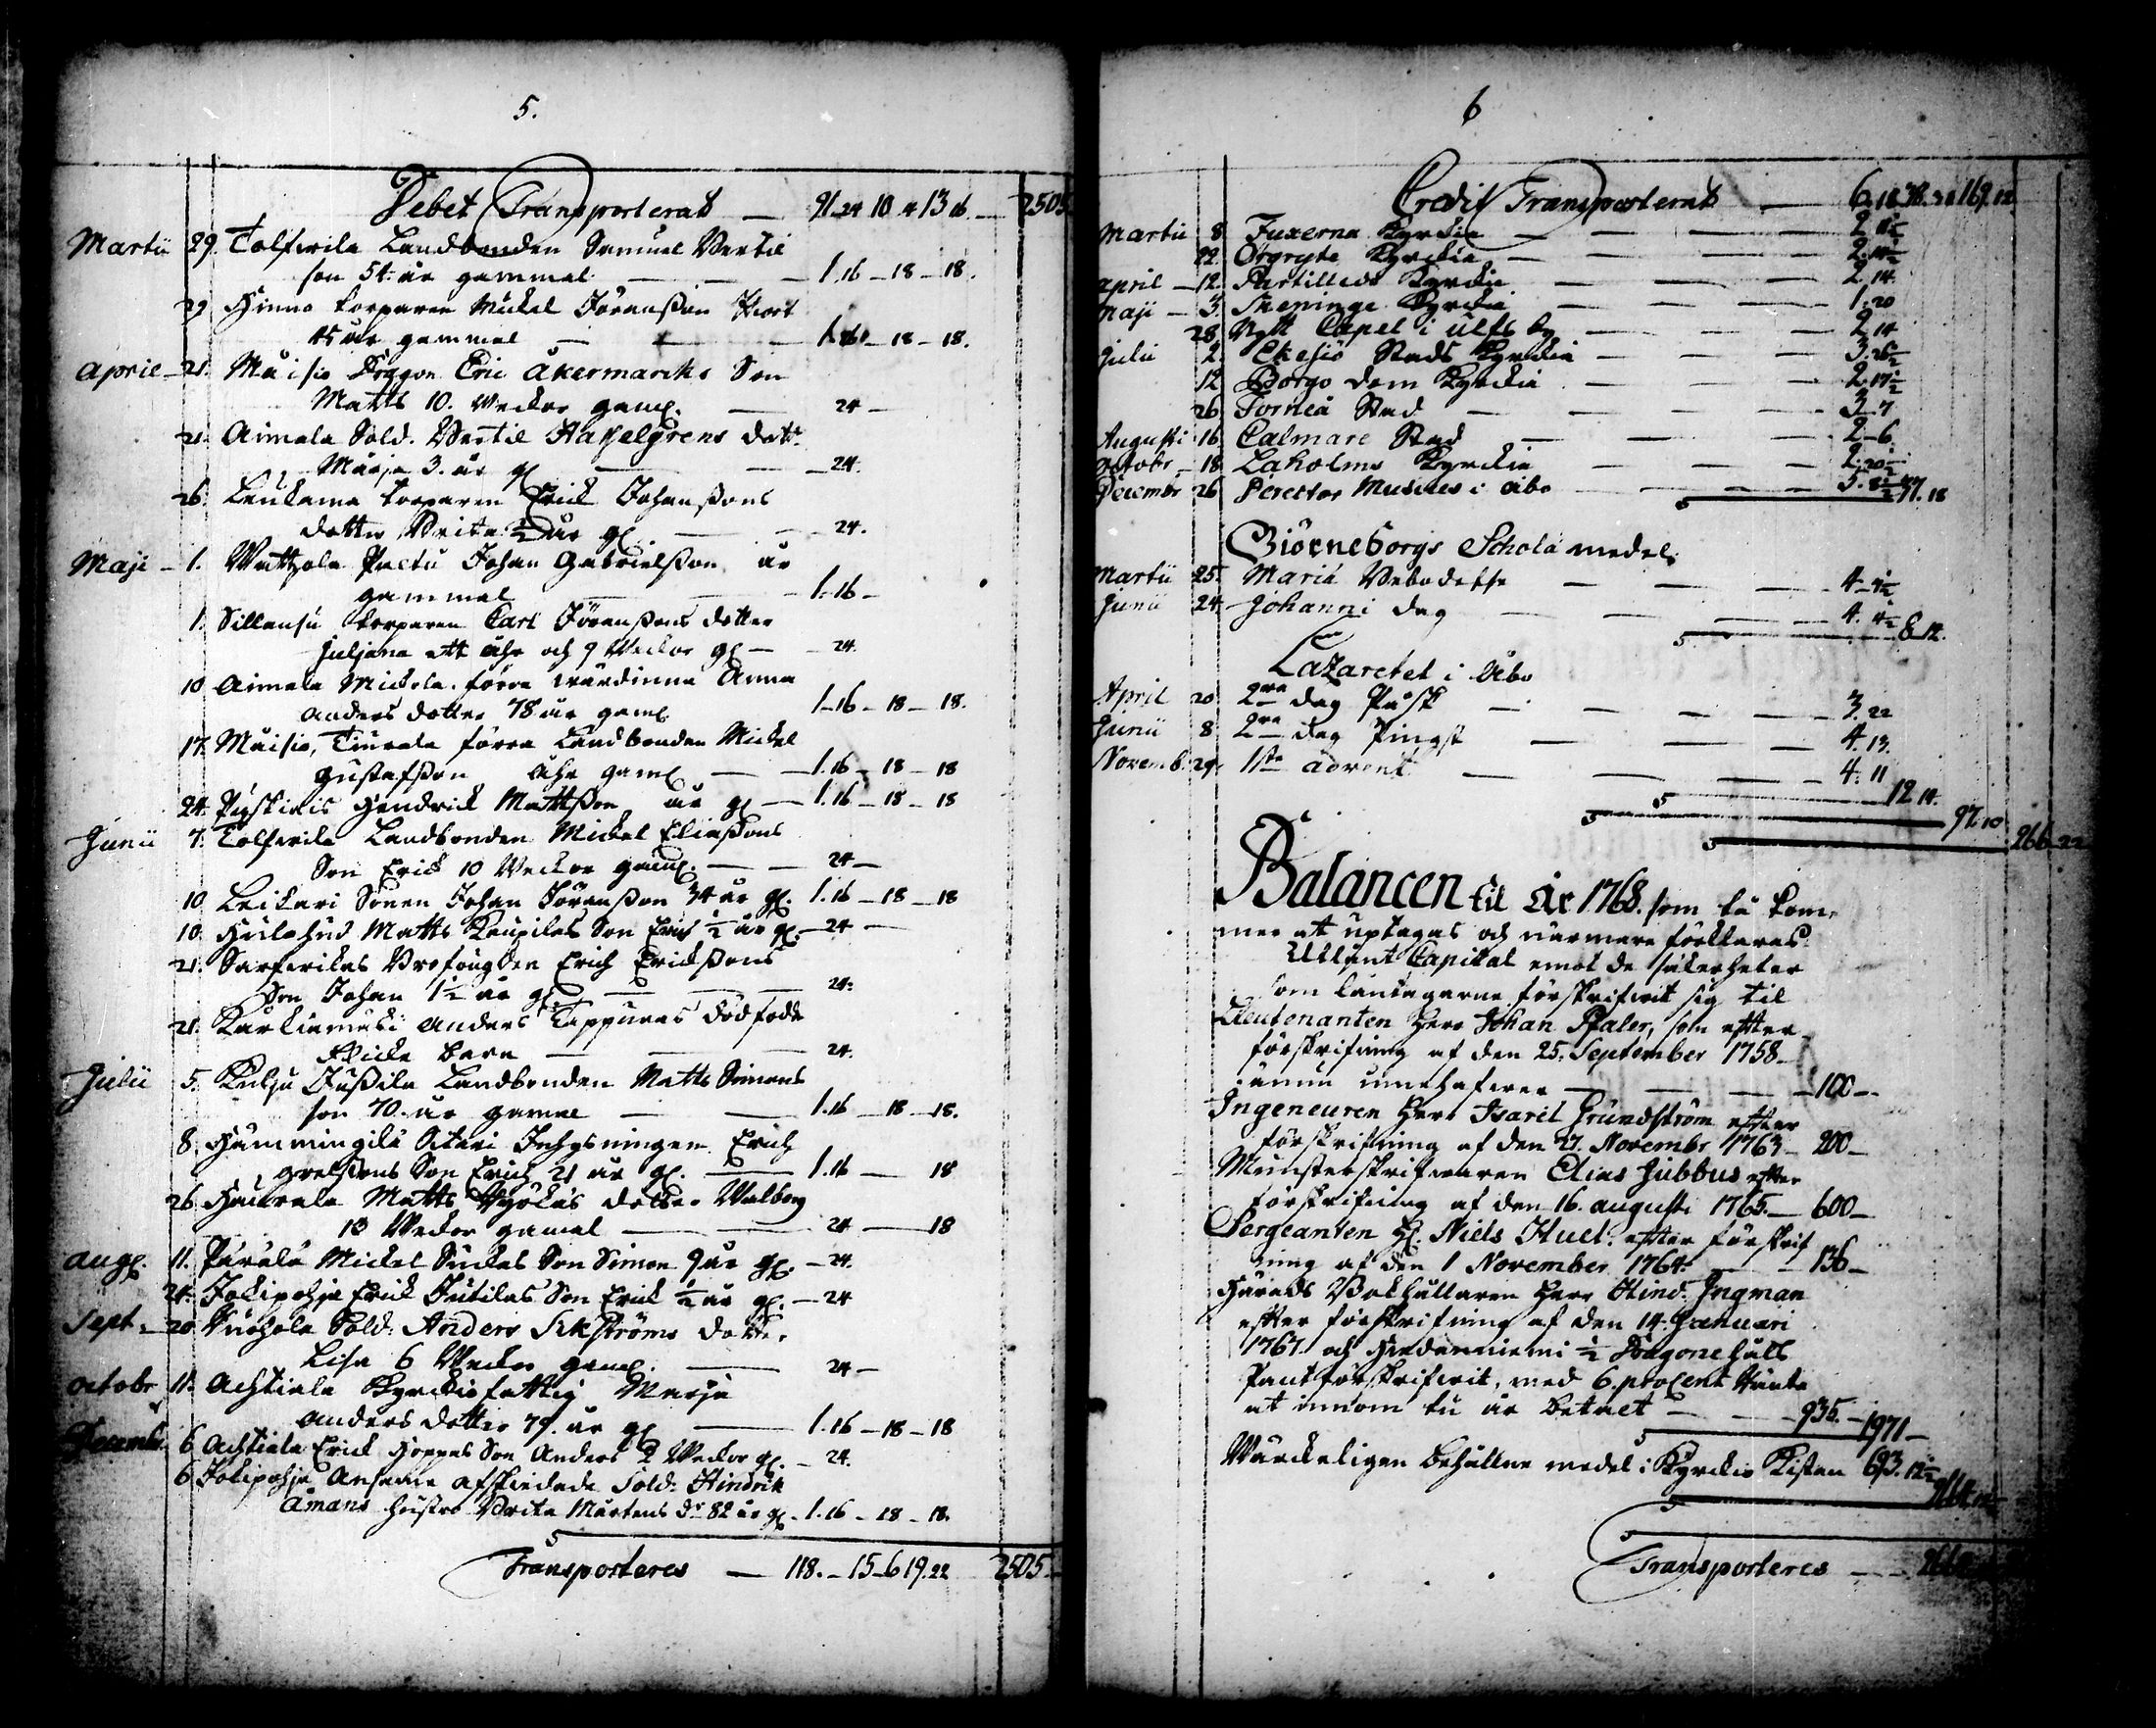 5.
Debet Transporterat — 91.24 10.4 13.16. — 2505.
Martii 29. Tolfwila Landbonden Samuel Bertil
son 54 år gammal — 1.16 — 18 — 18.
29 Hinno torparen Mickel Jöransson Hiort
45 år gammal — 1.16 — 18 — 18.
April — 21. Muisio Dragon Eric Åkermarcks Son
Matts 10. Weckor gaml. — 24 —
21. Aimala Sold. Bertil Hasselgrens dotter
Marja 3. år gl — 24.
26. Laukama torparen Erick Johanssons
dotter Brita ½ år gl. — 24.
Maji — 1. Pactu Johan Gabrielsson år
gammal — 1.16 —
1. Sillansu torparen Carl Jöranssons dotter
Juliana ett åhr och 9 Weckor gl — 24.
10 Aimala Mickola förra wärdinna Anna
Anders dotter 78 år gaml. 1.16 — 18 — 18.
17. Muisio, Tiurala förra Landbonden Mickel
Gustafsson åhr gaml — 1.16 — 18 — 18
24. Hendrick Mattsson år gl — 1.16 — 18 — 18
Junii 7. Tolfwila Landbonden Mickel Eliassons
Son Erick 10 Weckor gaml. — 24 —
10 Leikari Sonen Johan Jöransson 34 år gl. 1.16 — 18 — 18
10. Matts Son Erich ½ år gl. — 24 —
21. Erich Erickssons
Son Johan 1½ år gl. — 24.
21. Anders dödfödde
Flicke barn — 24.
Julii 5. Jussila Landbonden Matts Simons
son 70. år gamal — 1.16 — 18 — 18.
8. Inhysningen Erich
Son Erich 21 år gl. — 1.16 — 18
26 Matts dotter Walborg
13 Weckor gamal — 24 — 18
Aug. 11. Mickel Son Simon 9 år gl. — 24.
24. Jokipohja Erick Son Erick ½ år gl. — 24
Sept. — 20 Sold: Anders Sikströms dotter
Lisa 6 Weckor gaml. — 24 —
Octobr 11. Achtiala Kyrckiofattig Marja
Anders dotter 79. år gl — 1.16 — 18 — 18
Decemb. 6 Achtiala Erick Hoppes Son Anders 2 Weckor gl. — 24.
6 Jokipohja afskiedade Sold: Hindrik
Åmans hustro Brita Mårtens dr 82 år gl. 1.16 — 18 — 18.
Transporteres — 118. — 15.6 19.22 2505
6
Credit Transporterat — 6.18 169.12
Martii 8 Fuxerna Kyrckia — 2
22. Örgryte Kyrckia — 2.
April — 12. Partilleds Kyrckia — 2.14
Maji — 3. Skeninge Kyrckia — 1.20
28. Nytt Capel i Ulfsby — 2.14
Julii 2. Ekesiö Stads Kyrckia — 3.
12 Borgo dom Kyrckia — 2.17½
26 Torneå Stad — 3.7
Augusti 16 Calmare Stad — 2.6.
Octobr — 18. Laholms Kyrckia — 2.
Decembr 26 i Åbo — 5. 77.18
Biörneborgs Schola medel.
Martii 25. Mariæ Bebådelse — 4.
Junii 24. Johanni dag — 4. 4½ 8.12.
Lazaretet i Åbo
April 20 2ra dag Påsk — 3.22
Junii 8 2ra dag Pingst — 4.13.
Novemb. 29. 1sta Advent — 4.11
12.14.
97.10
266.22
Balancen til År 1768. som då kom=
mer at uptagas och närmare förklaras.
Utlånt Capital emot de säkerheter
som låntagarne förskrifwit sig til
Lieutenanten Herr Johan Pfaler, som efter
förskrifning af den 25. September 1758
ännu innehafwer — 100 —
Ingeneuren Herr Isaril Grundström efter
förskrifning af den 27. Novembr 1763 — 200 —
Munsterskrifwaren Elias Gubbus efter
förskrifning af den 16. Augusti 1765. — 600 —
Sergeanten H. Niels Huel. efter förskrif
ning af den 1 November 1764. — 136 —
Härads Bokhållaren Herr Hind. Ingman
efter förskrifning af den 14. Januari
1767. och ½ Dragonehålls
Pantförskrifwit, med 6. procent Ränta
at innom tu år betalt — 935. — 1971 —
Wärckeligen behållne medel i Kyrckio Kistan 693. 12½
2664.
Transporteres — 2664